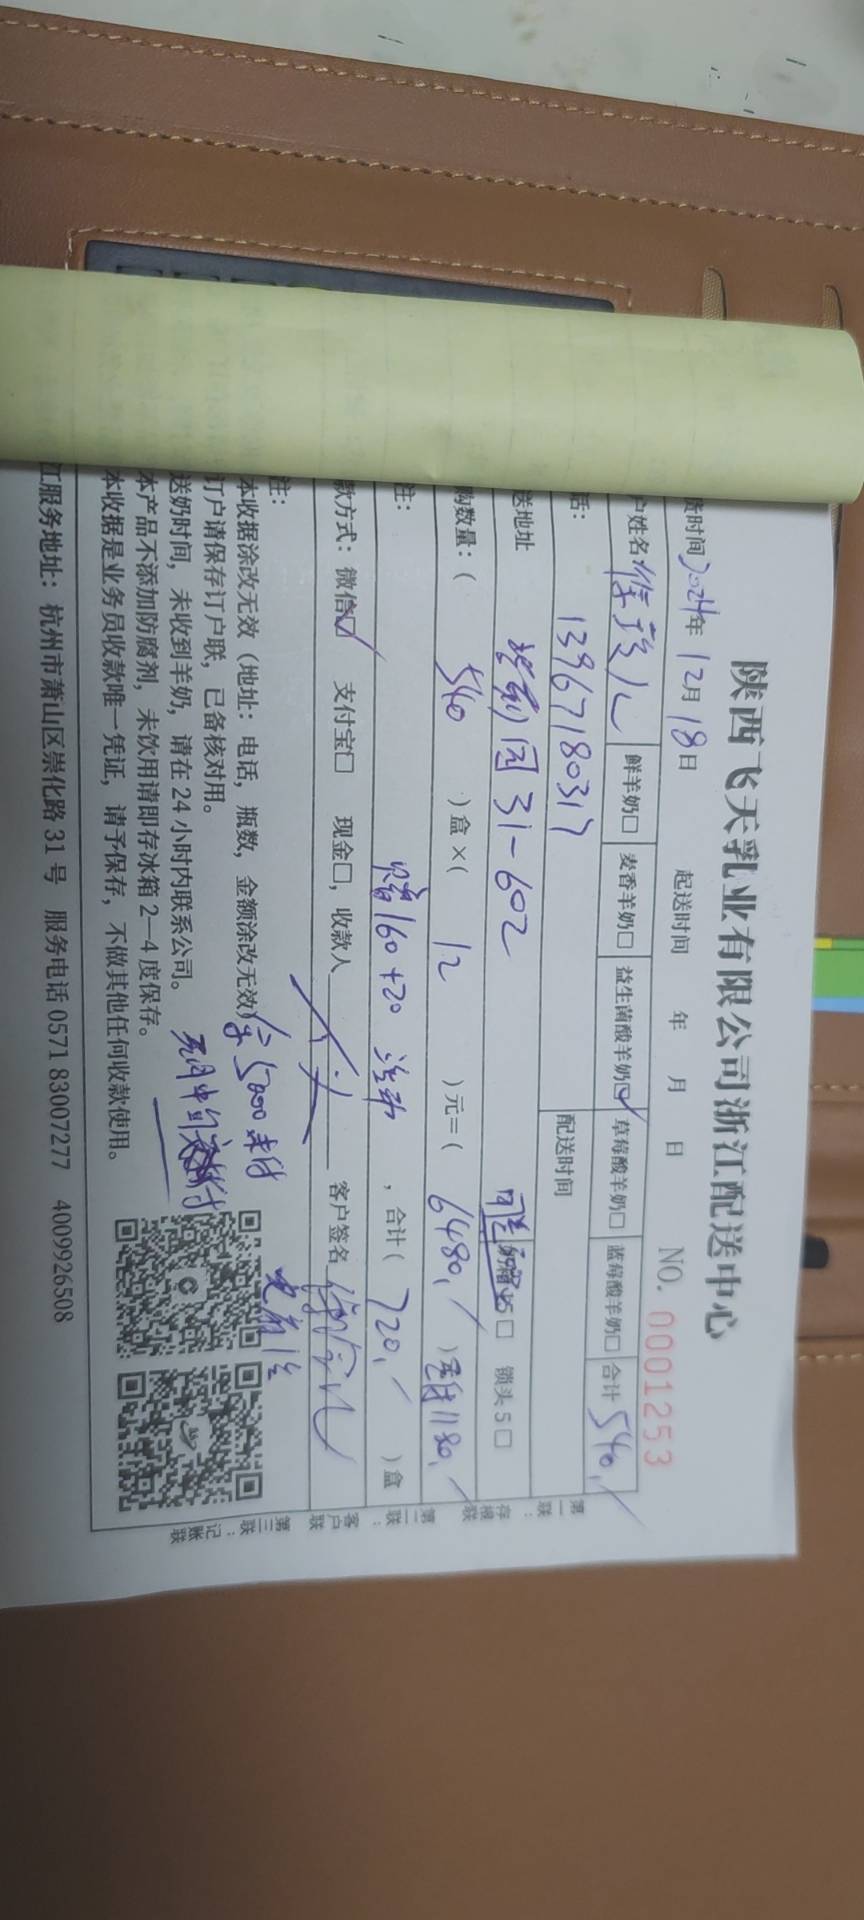 陕西飞天乳业有限公司浙江配送中心
NO. 0001253
费时间 2024年 12月 18日 起送时间 年 月 日
户姓名 鲜羊奶□ 麦香羊奶□ 益生菌酸羊奶☑ 草莓酸羊奶□ 蓝莓酸羊奶□ 合计 540
话: 13967180317 配送时间
送地址 园 31-602 奶箱 □ 锁头5□
购数量:( 540 )盒×( 12 )元=( 6480, )元 付1180,
注: 赠160+20 活动 , 合计( 720, )盒
款方式: 微信☑ 支付宝□ 现金□, 收款人 客户签名
注:
本收据涂改无效(地址: 电话, 瓶数, 金额涂改无效) 余5300未付
订户请保存订户联, 已备核对用。
送奶时间, 未收到羊奶, 请在 24 小时内联系公司。
本产品不添加防腐剂, 未饮用请即存冰箱 2—4 度保存。
本收据是业务员收款唯一凭证, 请予保存, 不做其他任何收款使用。
江服务地址: 杭州市萧山区崇化路 31 号 服务电话 0571 83007277 4009926508
第一联: 存根联
第二联: 客户联
第三联: 记账联